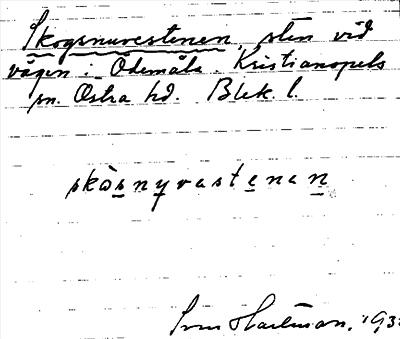 Skogsnuvestenen, sten vid
vägen i Ödemåla. Kristianopels
sn. Östra hd. Blek. l.
skòsnyvastenen
Sven Hartman, 193